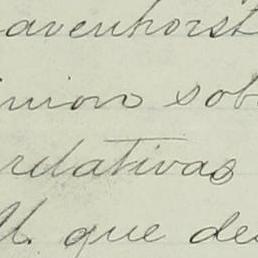 avenhorst
inion sob
relativas
U. que de